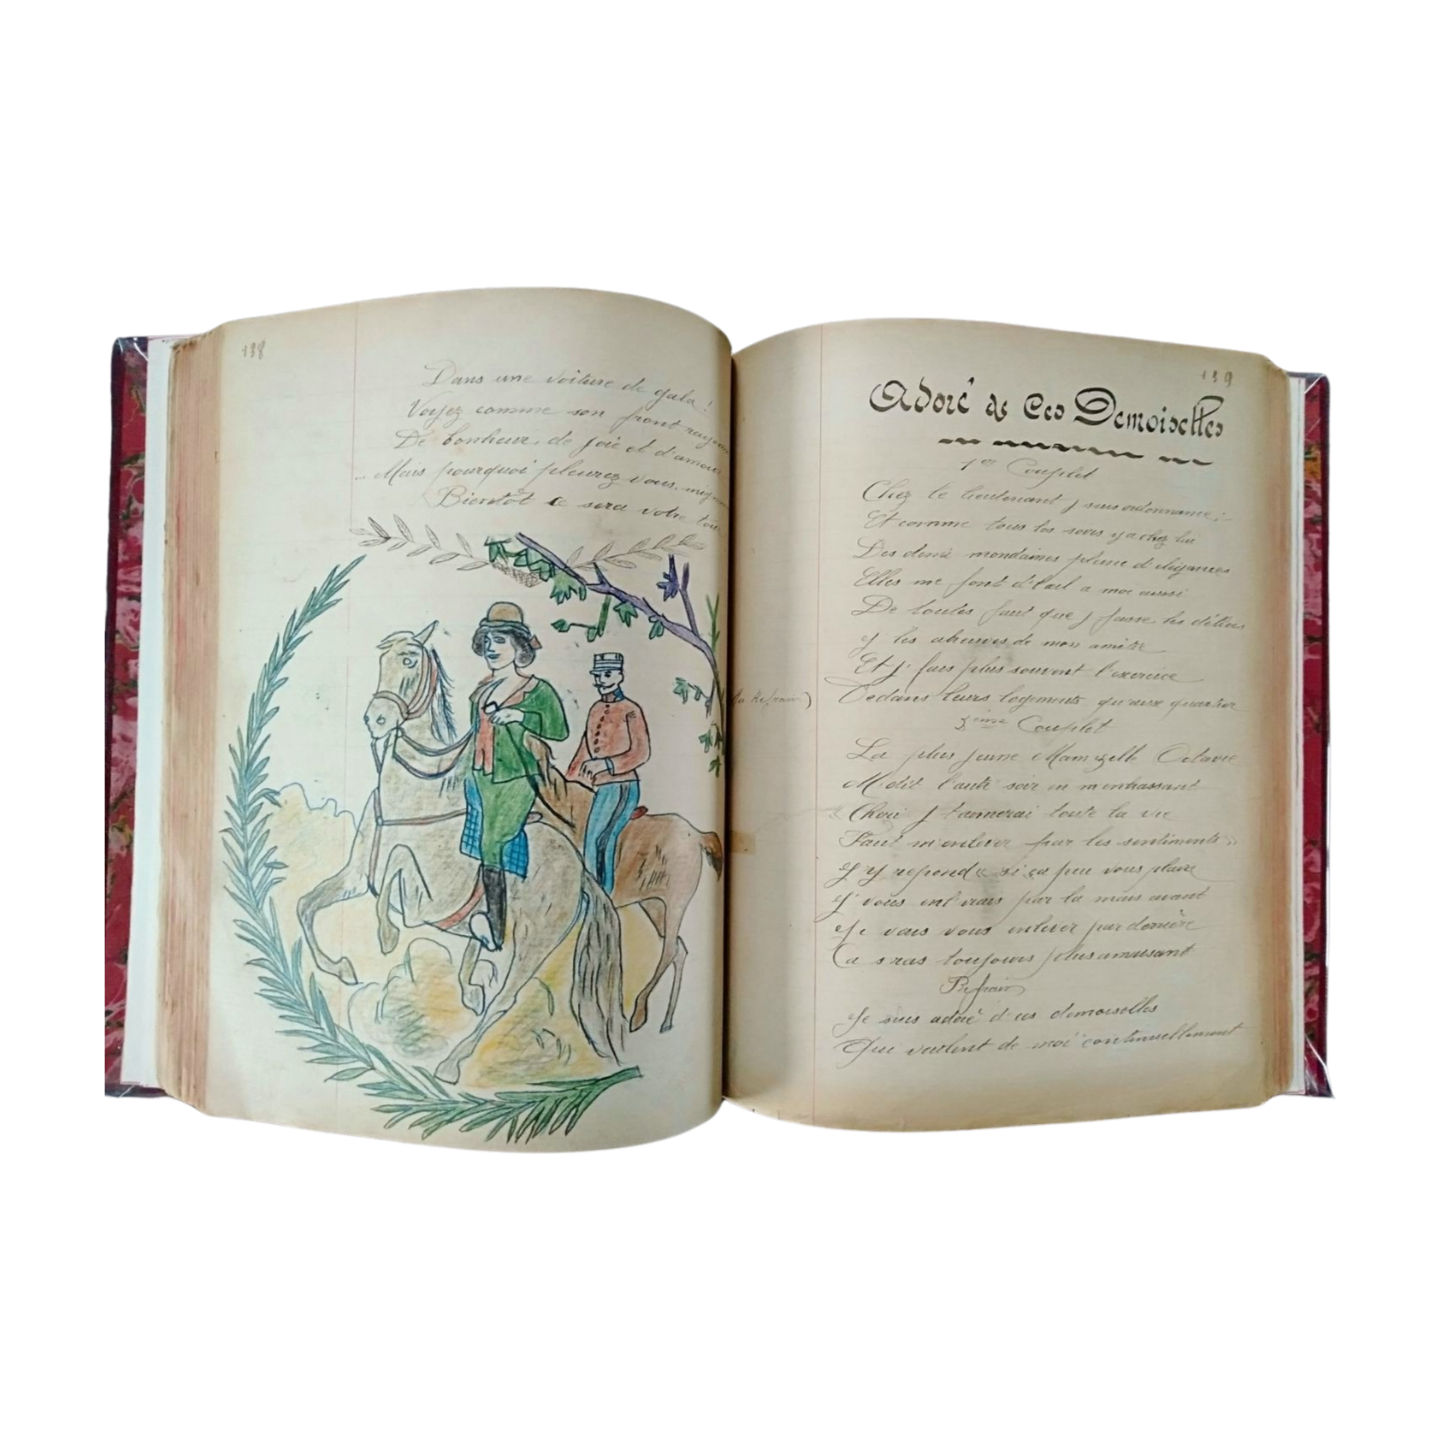 138
Dans une voiture de gala!
Voyez comme son front
De bonheur, de joie et d'amour
... Mais pourquoi pleurez vous,
Bientôt ce sera votre tour
139
Adoré de Ces Demoiselles
1er Couplet
Chez le lieutenant j'suis ordonnance;
Et comme tous les soirs y a chez lui
Des demi mondaines pleine d'élégances
Elles me font d'l'œil a moi aussi
De toutes faut que j'fasse les délices
y les de mon
Et j'fais plus souvent l'exercice
Dedans leurs logements qu'aux quartier
(au Refrain)
3ème Couplet
La plus jeune Mamzelle Octavie
M'dit l'autr' soir en m'enbrassant
« Cheri j't'aimerai toute la vie
Faut m'enlever par les sentiments »
J'y repond « si ça peu vous plaire
J'vous enl'vrais par la main avant
Je vais vous enlever par derrière
Ca s'ras toujours plus amusant
Refrain
Je suis adoré d'ces demoiselles
Qui veulent de moi continuellement